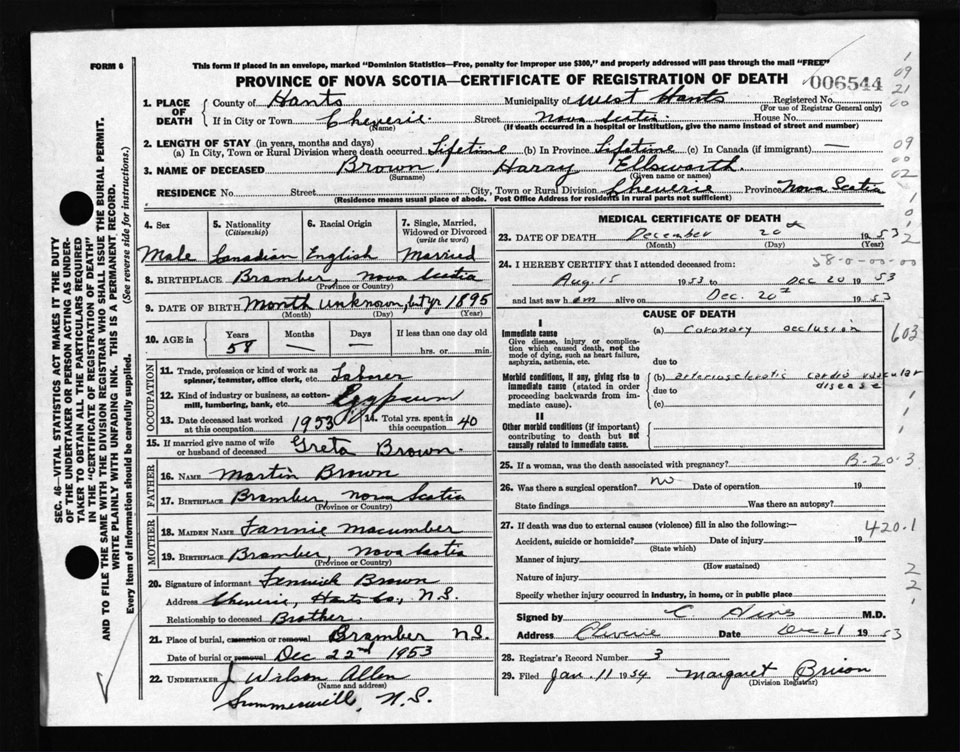 FORM 6
This form if placed in an envelope, marked "Dominion Statistics—Free, penalty for improper use $300," and properly addressed will pass through the mail "FREE"
PROVINCE OF NOVA SCOTIA—CERTIFICATE OF REGISTRATION OF DEATH
006544
1. PLACE OF DEATH County of Hants Municipality of West Hants Registered No.
(For use of Registrar General only)
If in City or Town Cheverie. Street Nova Scotia House No.
(Name) (If death occurred in a hospital or institution, give the name instead of street and number)
2. LENGTH OF STAY (in years, months and days)
(a) In City, Town or Rural Division where death occurred Lifetime (b) In Province Lifetime (c) In Canada (if immigrant) —
3. NAME OF DECEASED Brown, Harry Ellsworth
(Surname) (Given name or names)
RESIDENCE No. Street City, Town or Rural Division Cheverie Province Nova Scotia
(Residence means usual place of abode. Post Office Address for residents in rural parts not sufficient)
4. Sex 5. Nationality (Citizenship) 6. Racial Origin 7. Single, Married, Widowed or Divorced (write the word)
Male Canadian English Married
8. BIRTHPLACE Bramber, Nova Scotia
(Province or Country)
9. DATE OF BIRTH Month unknown, but yr 1895
(Month) (Day) (Year)
10. AGE in Years Months Days If less than one day old
58 — — hrs. or min.
OCCUPATION
11. Trade, profession or kind of work as spinner, teamster, office clerk, etc. Laborer
12. Kind of industry or business, as cotton-mill, lumbering, bank, etc. Gypsum
13. Date deceased last worked at this occupation 1953 14. Total yrs. spent in this occupation 40
15. If married give name of wife or husband of deceased Greta Brown.
FATHER
16. NAME Martin Brown
17. BIRTHPLACE Bramber, Nova Scotia
(Province or Country)
MOTHER
18. MAIDEN NAME Fannie Macumber
19. BIRTHPLACE Bramber, Nova Scotia
(Province or Country)
20. Signature of informant Fenwick Brown
Address Cheverie, Hants Co., N.S.
Relationship to deceased Brother.
21. Place of burial, cremation or removal Bramber N.S.
Date of burial or removal Dec 22nd 1953
22. UNDERTAKER J Wilson Allen
(Name and address)
Summerville, N.S.
MEDICAL CERTIFICATE OF DEATH
23. DATE OF DEATH December 20th 1953
(Month) (Day) (Year)
58-0-00-00
24. I HEREBY CERTIFY that I attended deceased from:
Aug. 15 1953 to Dec 20 1953
and last saw him alive on Dec. 20th 1953
CAUSE OF DEATH
I
Immediate cause (a) Coronary occlusion
Give disease, injury or complication which caused death, not the mode of dying, such as heart failure, asphyxia, asthenia, etc.
due to
Morbid conditions, if any, giving rise to immediate cause (stated in order proceeding backwards from immediate cause).
(b) arteriosclerotic cardio vascular disease
due to
(c)
II
Other morbid conditions (if important) contributing to death but not causally related to immediate cause.
25. If a woman, was the death associated with pregnancy? B-20-3
26. Was there a surgical operation? no Date of operation 19
State findings Was there an autopsy?
27. If death was due to external causes (violence) fill in also the following:—
420.1
Accident, suicide or homicide? Date of injury 19
(State which)
Manner of injury
(How sustained)
Nature of injury
Specify whether injury occurred in industry, in home, or in public place
Signed by C. M.D.
Address Cheverie Date Dec 21 1953
28. Registrar's Record Number 3
29. Filed Jan. 11 1954 Margaret
(Division Registrar)
SEC. 46—VITAL STATISTICS ACT MAKES IT THE DUTY
OF THE UNDERTAKER OR PERSON ACTING AS UNDER-
TAKER TO OBTAIN ALL THE PARTICULARS REQUIRED
IN THE "CERTIFICATE OF REGISTRATION OF DEATH"
AND TO FILE THE SAME WITH THE DIVISION REGISTRAR WHO SHALL ISSUE THE BURIAL PERMIT.
WRITE PLAINLY WITH UNFADING INK. THIS IS A PERMANENT RECORD.
Every item of information should be carefully supplied. (See reverse side for instructions.)
1
09
21
00
09
00
02
603
2
2
1